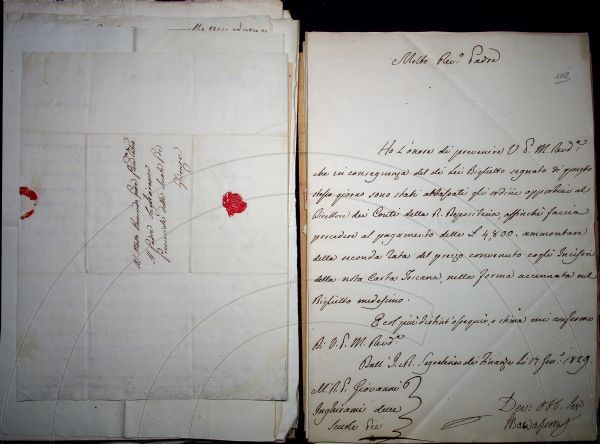 Al Molto Reverendo Padre
Il Padre Inghirami
delle Scuole Pie
Firenze
Molto Rev.º Padre
102
Ho l'onore di prevenire V. S. M. Rev.ª
che in conseguenza del di Lei Biglietto segnato di questo
stesso giorno sono stati abbassati gli ordini opportuni al
Direttore dei Conti della R. Depositeria, affinchè faccia
procedere al pagamento delle £ 4,800. ammontare
della seconda rata del prezzo convenuto cogli Incisori
della nota Carta Toscana, nella forma accennata nel
Biglietto medesimo.
E col più distinto ossequio, e stima mi confermo
Di V. S. M. Rev.ª
Dall' I. R. Segreteria di Finanze li 17 Genº 1829.
M. R. P. Giovanni
Inghirami delle
Scuole Pie
Dev: Obb. Ser